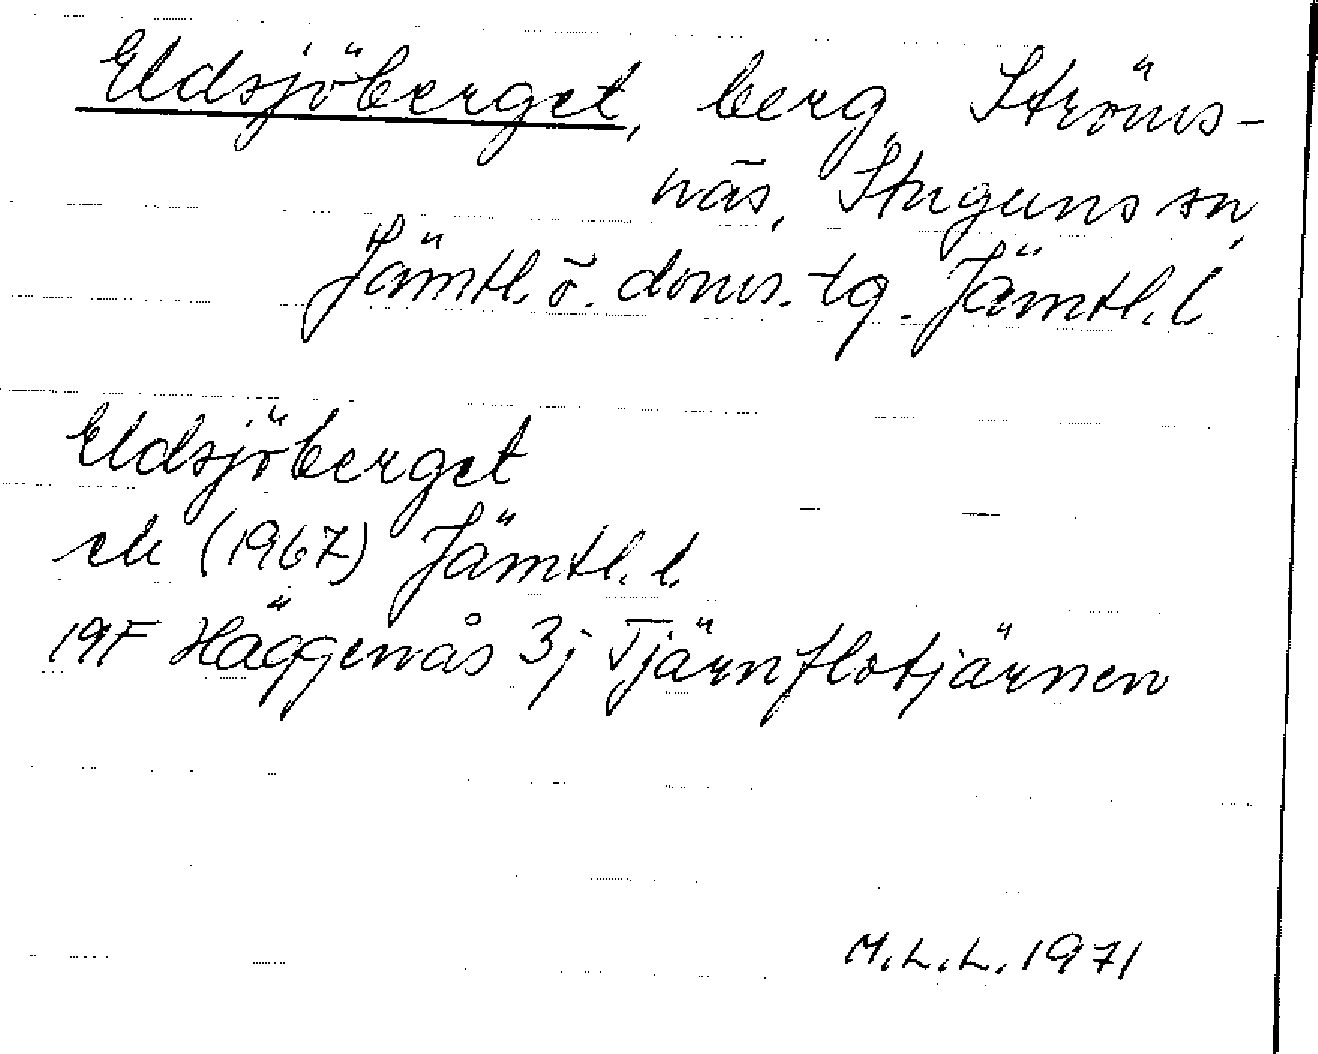 Eldsjöberget, berg, Ströms-
näs, Stuguns sn,
Jämtl. ö. doms. tg. Jämtl. l
Eldsjöberget
ek (1967) Jämtl. l.
19F Häggenås 3j Tjärnflotjärnen
M.L.L. 1971